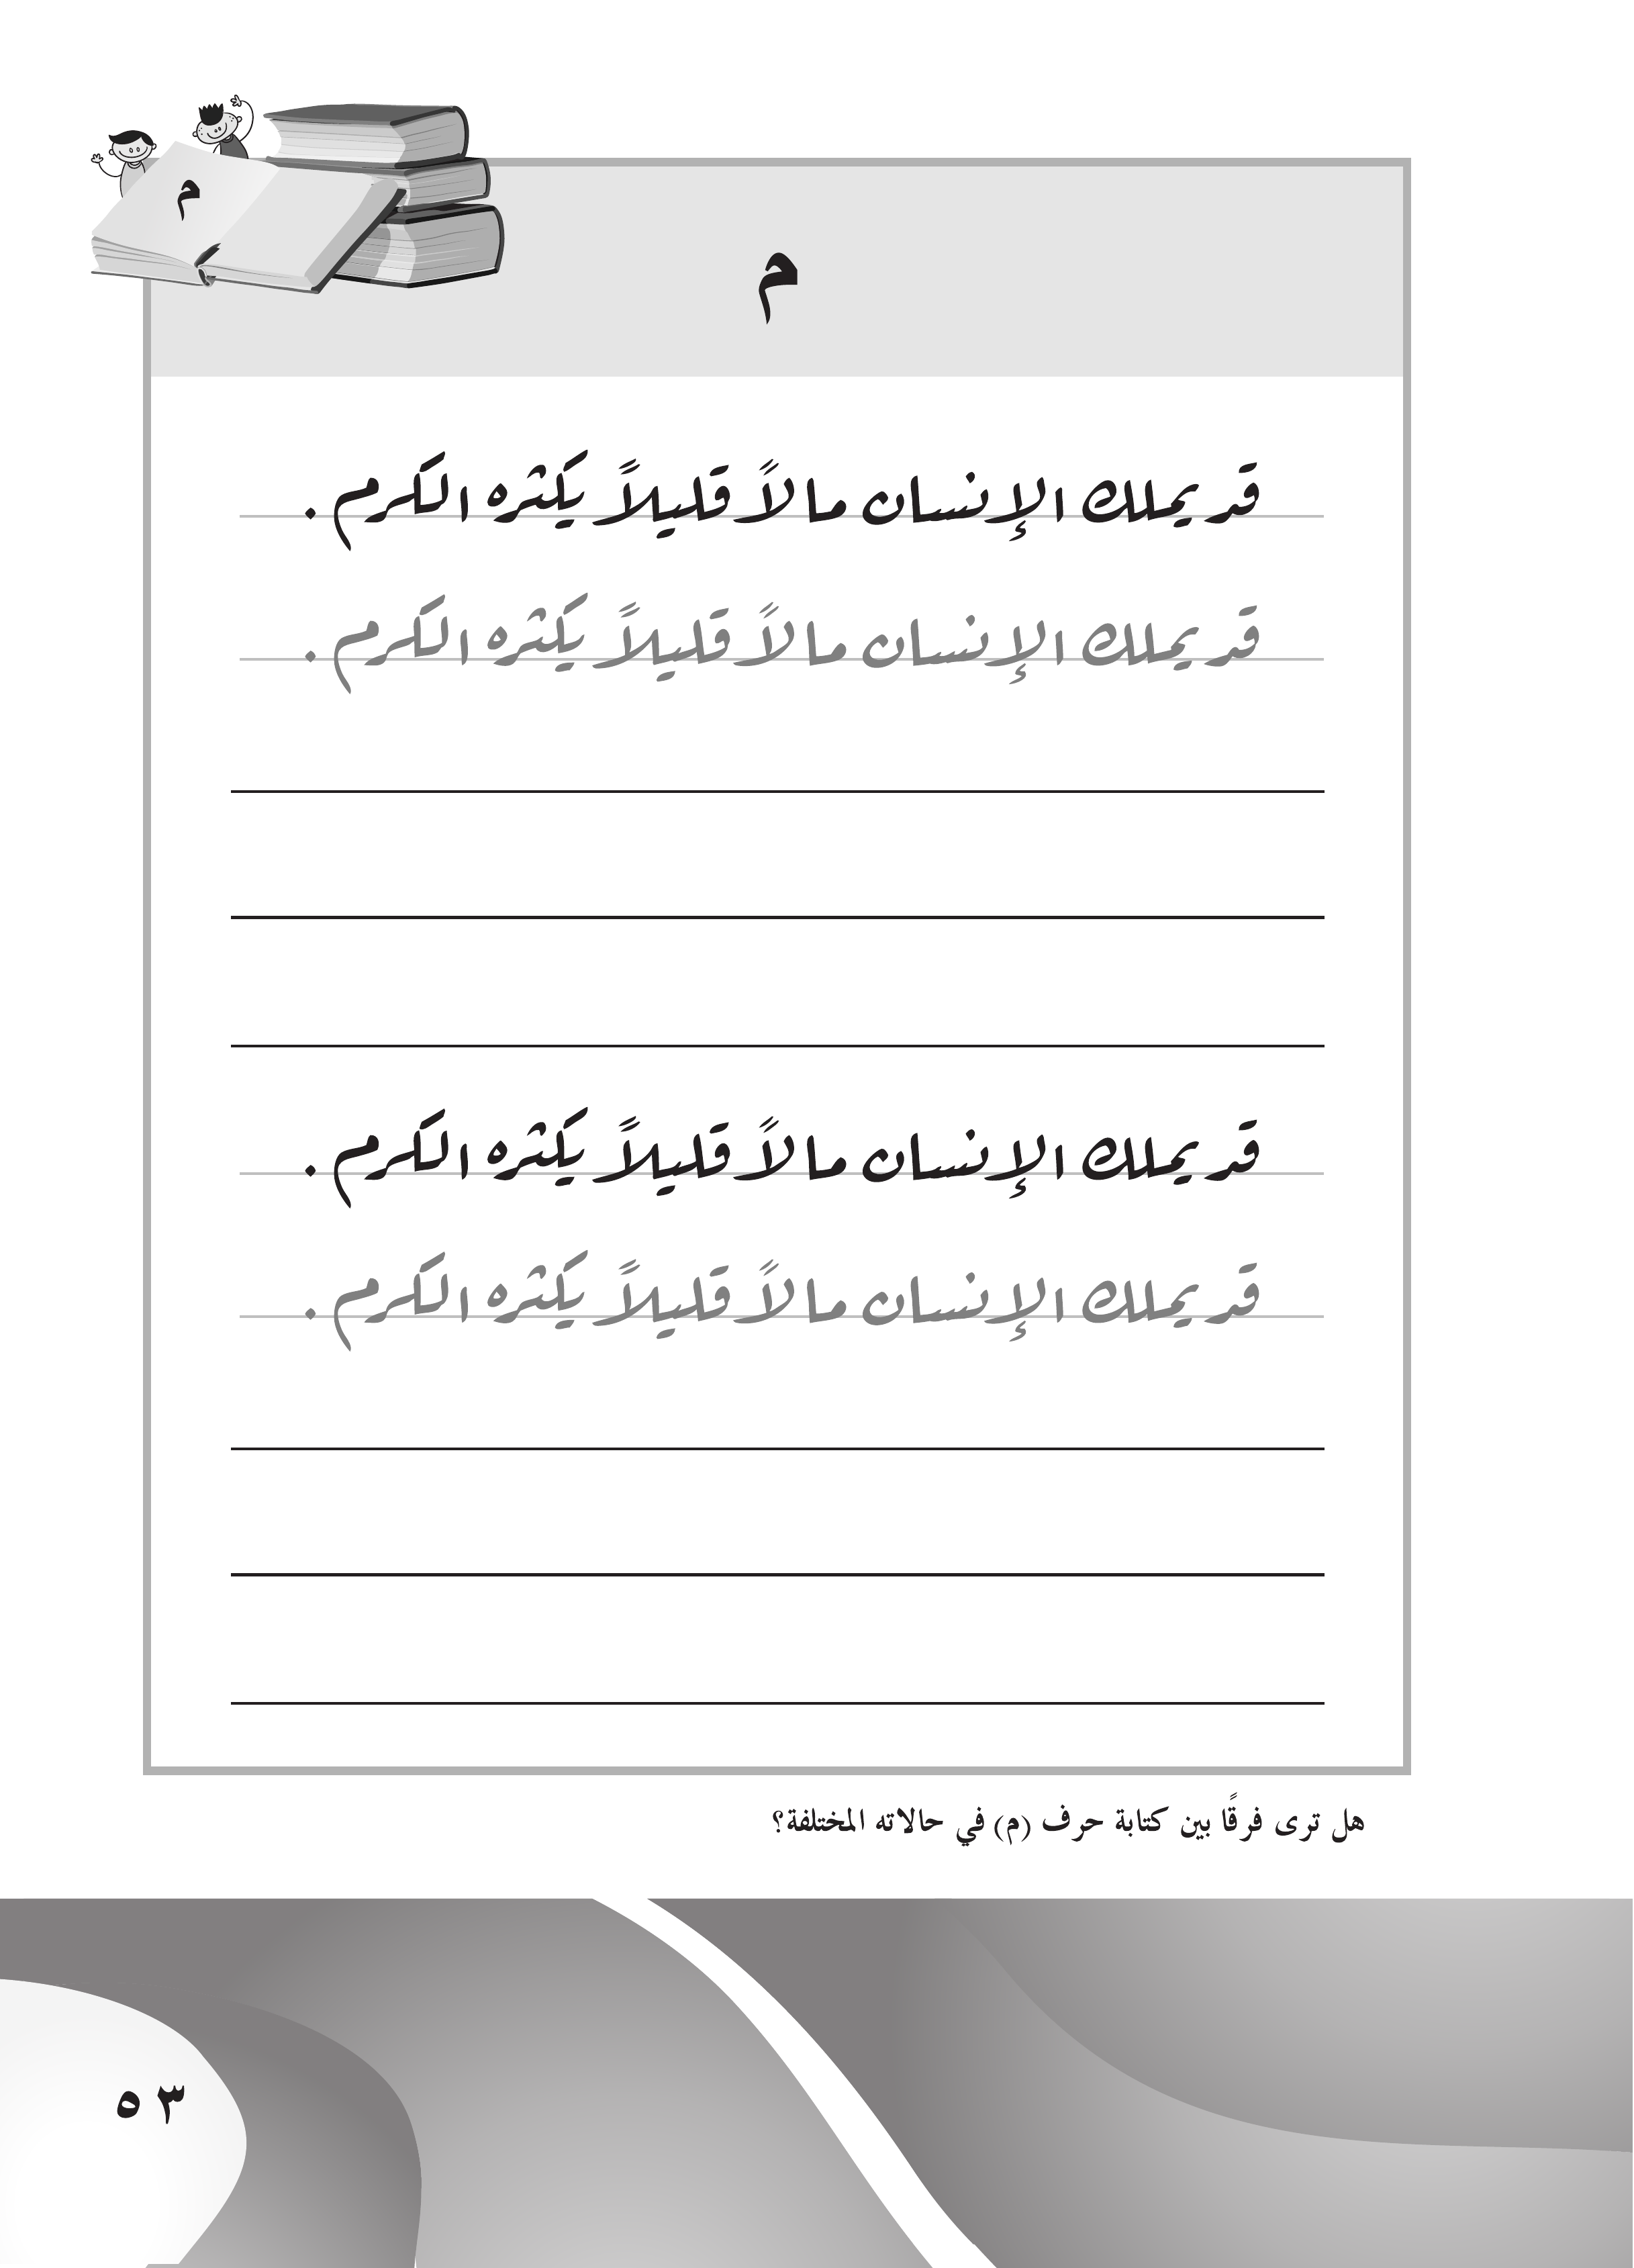 م
م
قد يملك الإنسان مالاً قليلاً يكثره الكرم .
قد يملك الإنسان مالاً قليلاً يكثره الكرم .
قد يملك الإنسان مالاً قليلاً يكثره الكرم .
قد يملك الإنسان مالاً قليلاً يكثره الكرم .
هل ترى فرقًا بين كتابة حرف (م) في حالاته المختلفة؟
٥٣